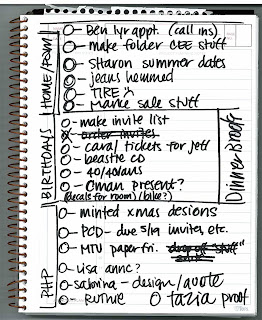 HOME/MOM
Ben 1yr appt. (call ins)
make folder GEE stuff
Sharon summer dates
jeans hemmed
TIRE
Manke sale stuff
BIRTHDAYS
make invite list
order invites
card/tickets for jeff
beastie CD
40/40/
Oman present?
(decals for room)/bike?)
Dinner Break
PHP
minted xmas designs
PCD - due 5/19 invites, etc.
MTU paper fri. drop off "stuff"
Lisa anne?
sabrina - design/quote
RUTHIE
tazia proof